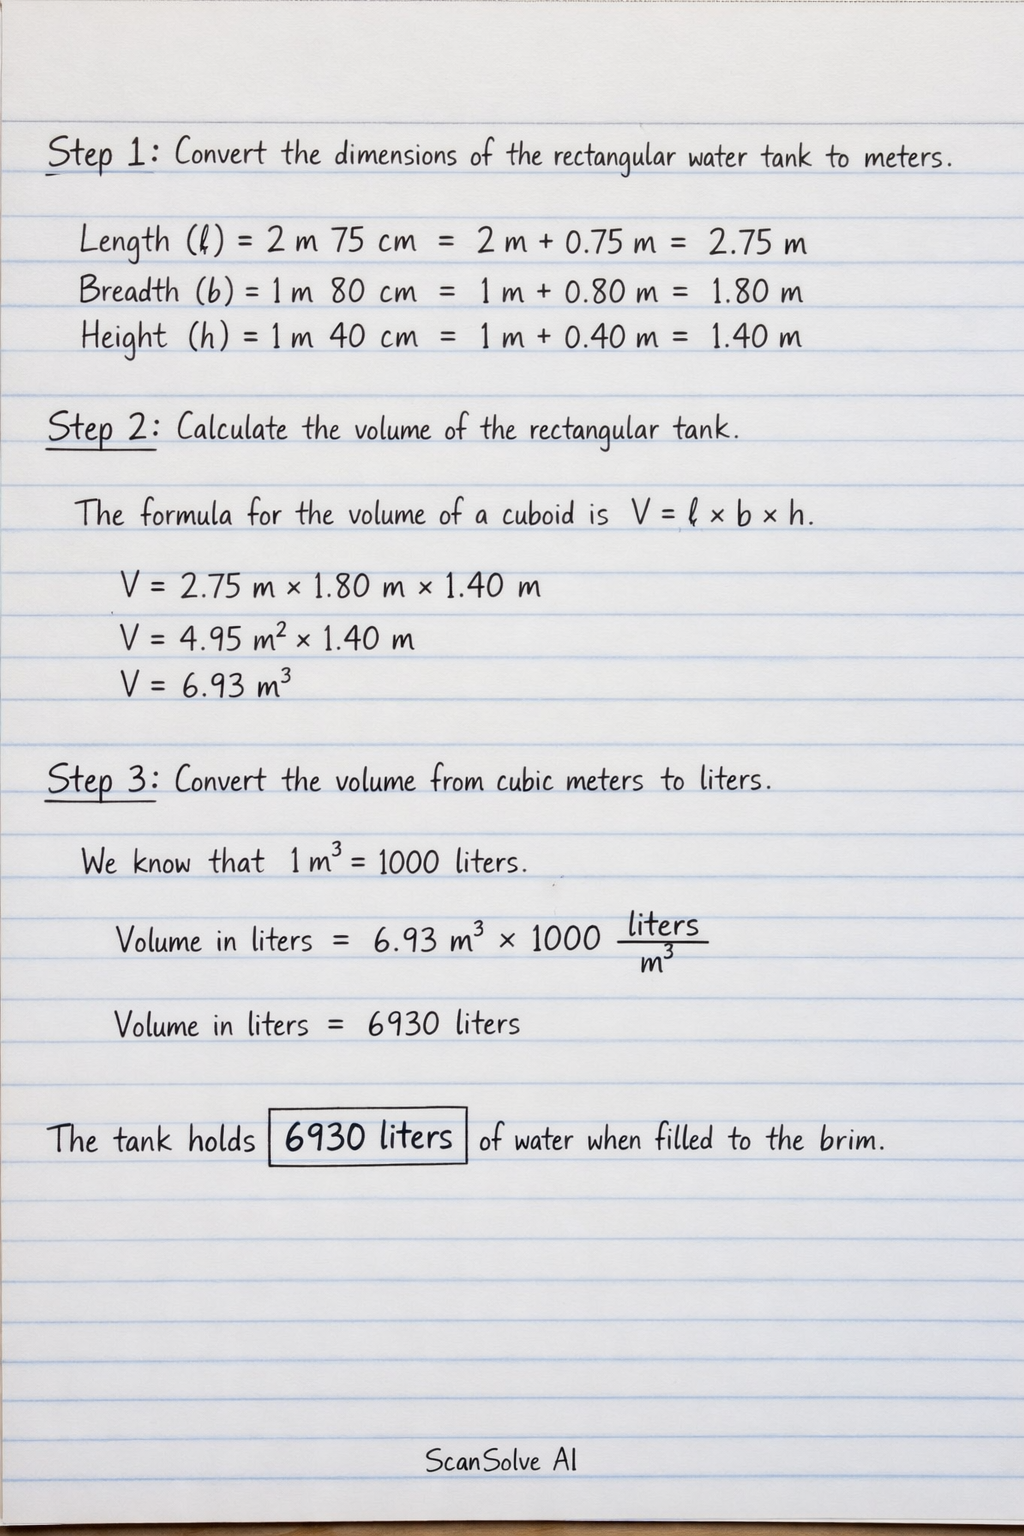 Step 1: Convert the dimensions of the rectangular water tank to meters.
Length (ℓ) = 2 m 75 cm = 2 m + 0.75 m = 2.75 m
Breadth (b) = 1 m 80 cm = 1 m + 0.80 m = 1.80 m
Height (h) = 1 m 40 cm = 1 m + 0.40 m = 1.40 m
Step 2: Calculate the volume of the rectangular tank.
The formula for the volume of a cuboid is V = ℓ × b × h.
V = 2.75 m × 1.80 m × 1.40 m
V = 4.95 m² × 1.40 m
V = 6.93 m³
Step 3: Convert the volume from cubic meters to liters.
We know that 1 m³ = 1000 liters.
Volume in liters = 6.93 m³ × 1000 liters/m³
Volume in liters = 6930 liters
The tank holds 6930 liters of water when filled to the brim.
ScanSolve AI